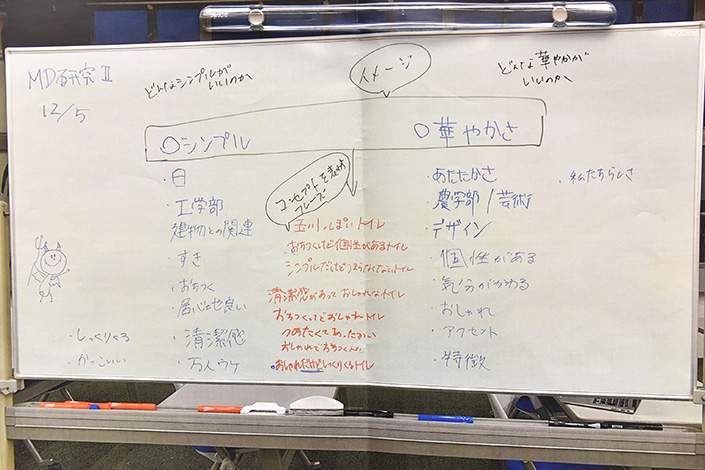 MD研究Ⅱ
12/5
どんなシンプルが
いいのか
イメージ
どんな華やかが
いいのか
○シンプル
○華やかさ
・白
・工学部
建物との関連
・すき
・おちつく
居心地良い
・清潔感
・万人ウケ
・しっくりくる
・かっこいい
コンセプトを表わす
フレーズ
玉川っぽいトイレ
おちつくけど個性があるトイレ
シンプルだけどつまらなくないトイレ
清潔感があっておしゃれなトイレ
おちつくけどおしゃれトイレ
つめたくてあったかい
おしゃれでおちつく
・おしゃれだけどしっくりくるトイレ
・あたたかさ
・農学部/芸術
・デザイン
・個性がある
・気分がかわる
・おしゃれ
・アクセント
・特徴
・私たちらしさ